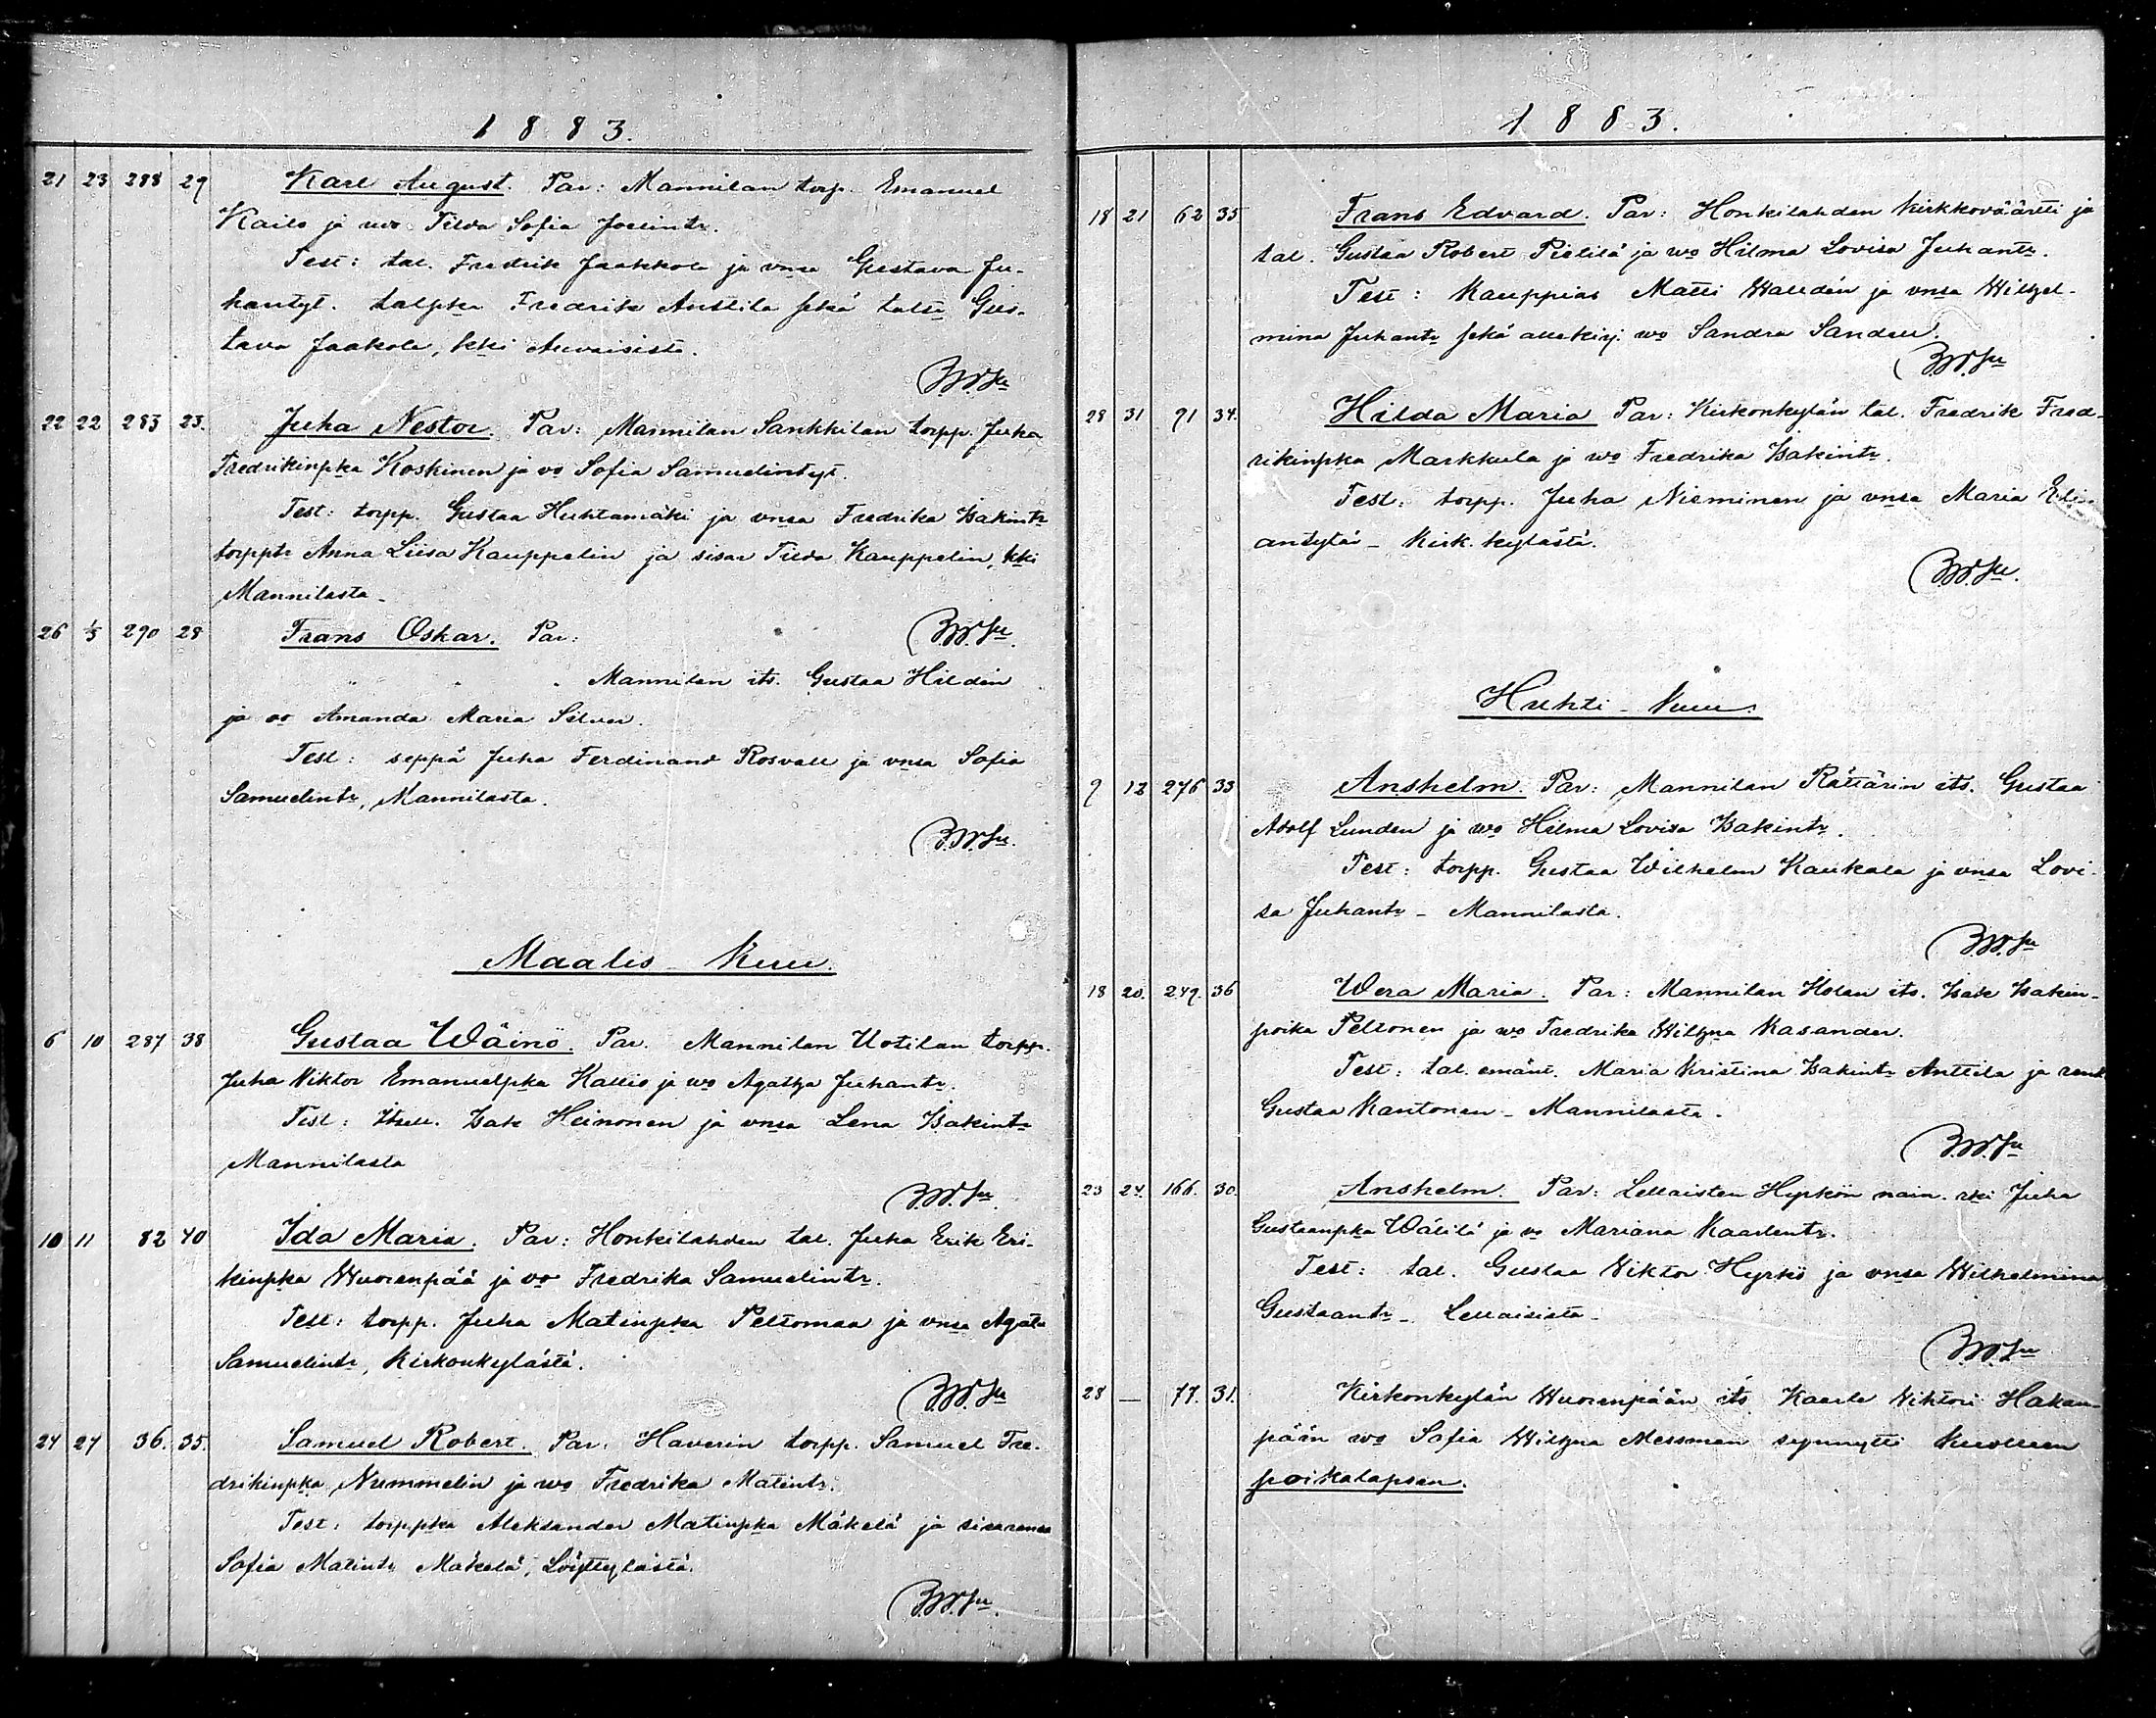 1883.
21 23 288 29 Karl August. Par: Mannilan torp. Emanuel
Kailo ja wo Tilda Sofia Joelintr.
Test: tal. Fredrik Jaakkola ja vnsa Gustava Ju-
hantyt. talpka Fredrik Anttila sekä taltr Gus-
tava Jaakola, kki Auvaisista.
22 22 283 23. Juha Nestor. Par: Mannilan Sankkilan torpp. Juha
Fredrikinpka Koskinen ja vo Sofia Samuelintyt.
Test: torpp. Gustaa Huhtamäki ja vnsa Fredrika Isakintr
torpptr Anna Liisa Kauppelin ja sisar Tilda Kauppelin, kki
Mannilasta
26 1/3 290 28 Frans Oskar. Par:
Mannilan its. Gustaa Hildén
ja vo Amanda Maria Silver.
Test: seppä Juha Ferdinand Rosvall ja vnsa Sofia
Samuelintr, Mannilasta.
Maalis-Kuu.
6 10 287 38 Gustaa Wäinö. Par. Mannilan Uotilan torpp.
Juha Viktor Emanuelpka Kallio ja wo Agatha Juhantr.
Test: Itsell. Isak Heinonen ja vnsa Lena Isakintr
Mannilasta
10 11 82 40 Ida Maria. Par: Honkilahden tal. Juha Erik Eri-
kinpka Wuorenpää ja vo Fredrika Samuelintr.
Test: torpp. Juha Matinpka Peltomaa ja vnsa Agata
Samuelintr, Kirkonkylästä.
24 27 36. 35. Samuel Robert. Par: Haverin torpp. Samuel Fre-
drikinpka Nummelin ja wo Fredrika Matintr.
Test: torppka Aleksander Matinpka Mäkelä ja sisarensa
Sofia Matintr Mäkelä, Löyttylästä.
1883.
18 21 62 35 Frans Edvard. Par: Honkilahden kirkkoväärtti ja
tal. Gustaa Robert Pietilä ja wo Hilma Lovisa Juhantr.
Test: Kauppias Matti Walldén ja vnsa Wilhel-
mina Juhantr sekä allekirj. wo Sandra Sandell.
28 31 91 34. Hilda Maria Par: Kirkonkylän tal. Fredrik Fred-
rikinpka Markkula ja wo Fredrika Isakintr.
Test: torpp. Juha Nieminen ja vnsa Maria Eli-
antytär - Kirk. kylästä.
Huhti-Kuu.
9 12 276 33 Anshelm. Par: Mannilan Rättärin its. Gustaa
Adolf Lunden ja wo Hilma Lovisa Isakintr.
Test: torpp. Gustaa Wilhelm Kaukala ja vnsa Lovi-
sa Juhantr - Mannilasta.
18 20. 249. 36 Wera Maria. Par: Mannilan Holan its. Isak Isakin-
poika Peltonen ja wo Fredrika Wilhna Kasander.
Test: tal. emänt. Maria Kristina Isakintr Anttila ja renk
Gustaa Kantonen - Mannilasta.
23 24. 166. 30. Anshelm. Par: Lellaisten Hyrkön nain. rki Juha
Gustaanpka Wälilä ja vo Mariana Kaarlentr.
Test: tal. Gustaa Viktor Hyrkö ja vnsa Wilhelmina
Gustaantr - Lellaisista.
28 — 77. 31. Kirkonkylän Wuorenpään its. Kaarle Viktori Hakan-
pään wo Sofia Wilhna Messman synnytti kuolleen
poikalapsen.